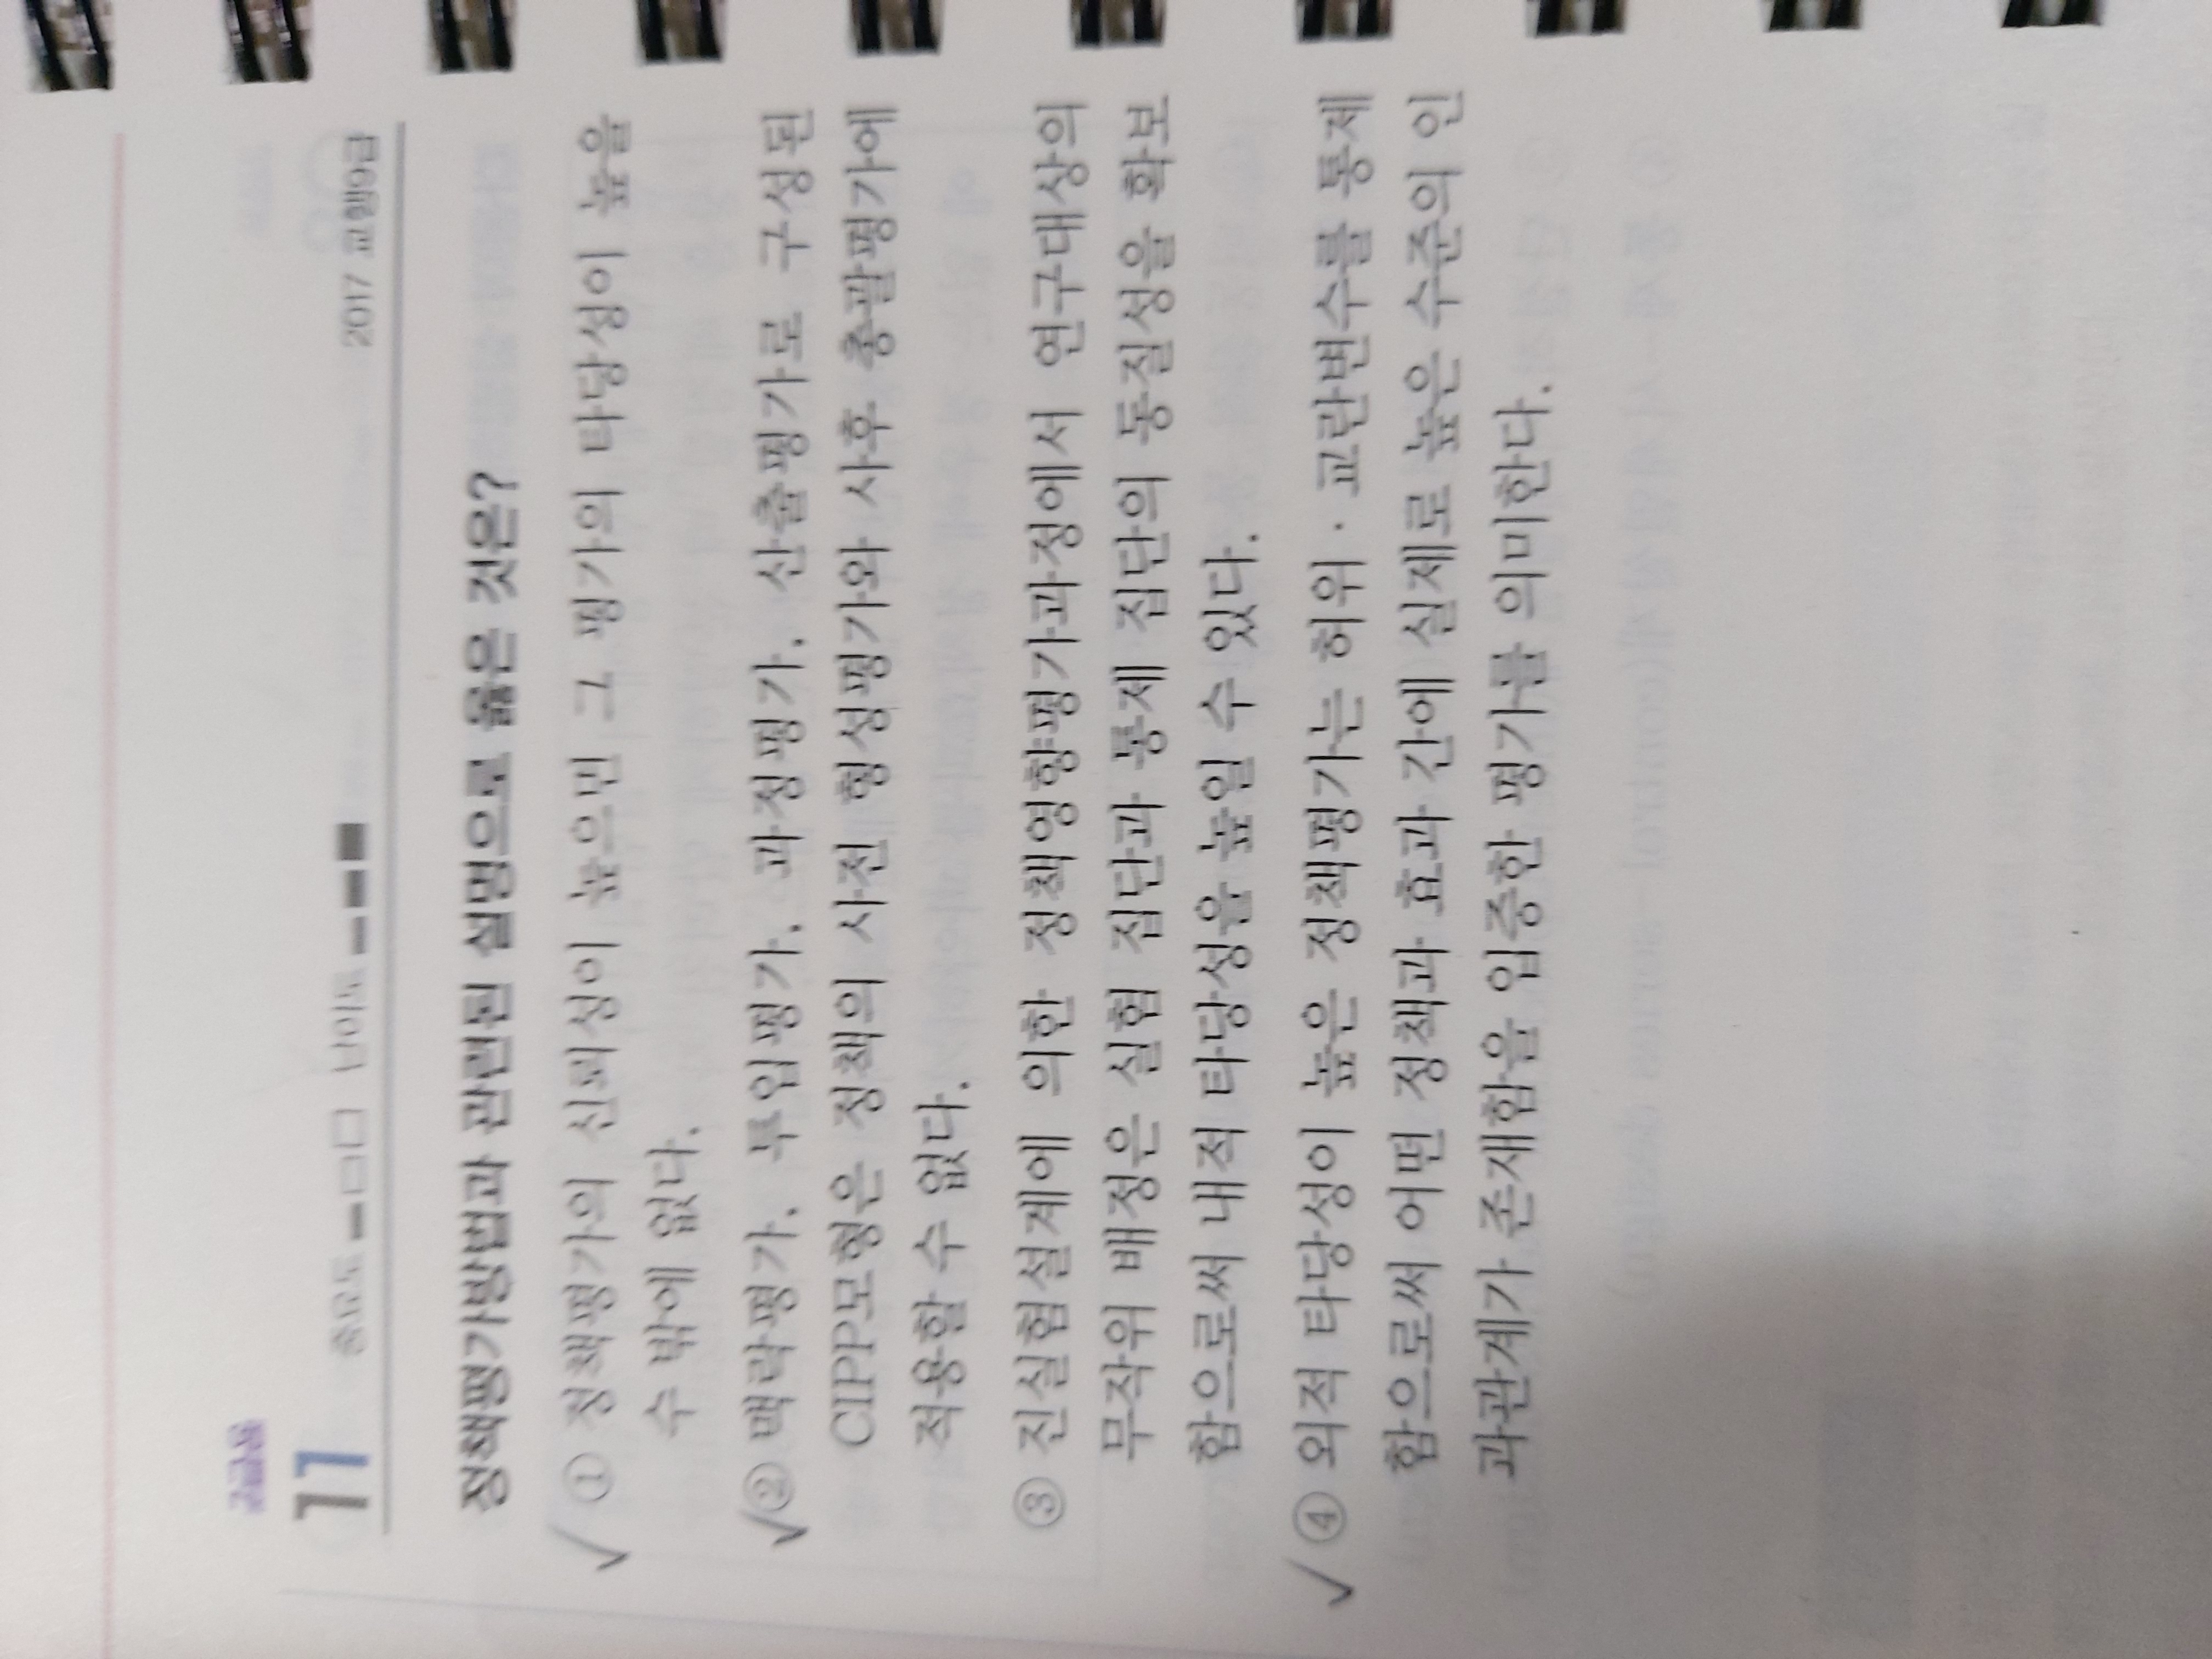 11 중요도 난이도 2017 교행9급
정책평가방법과 관련된 설명으로 옳은 것은?
① 정책평가의 신뢰성이 높으면 그 평가의 타당성이 높을
수 밖에 없다.
② 맥락평가, 투입평가, 과정평가, 산출평가로 구성된
CIPP모형은 정책의 사전 형성평가와 사후 총괄평가에
적용할 수 없다.
③ 진실험설계에 의한 정책영향평가과정에서 연구대상의
무작위 배정은 실험 집단과 통제 집단의 동질성을 확보
함으로써 내적 타당성을 높일 수 있다.
④ 외적 타당성이 높은 정책평가는 허위·교란변수를 통제
함으로써 어떤 정책과 효과 간에 실제로 높은 수준의 인
과관계가 존재함을 입증한 평가를 의미한다.